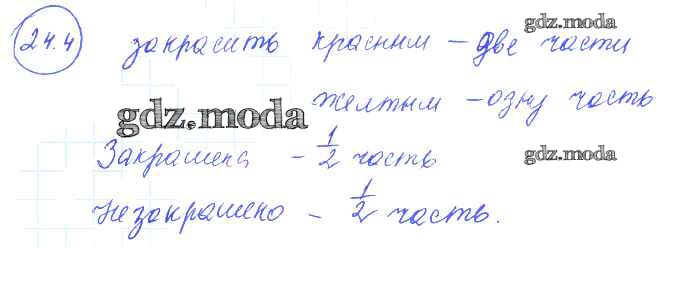 24.4 закрасить красным – две части
gdz.moda
желтым – одну часть
gdz.moda
Закрашена – 1/2 часть
gdz.moda
Незакрашено – 1/2 часть.